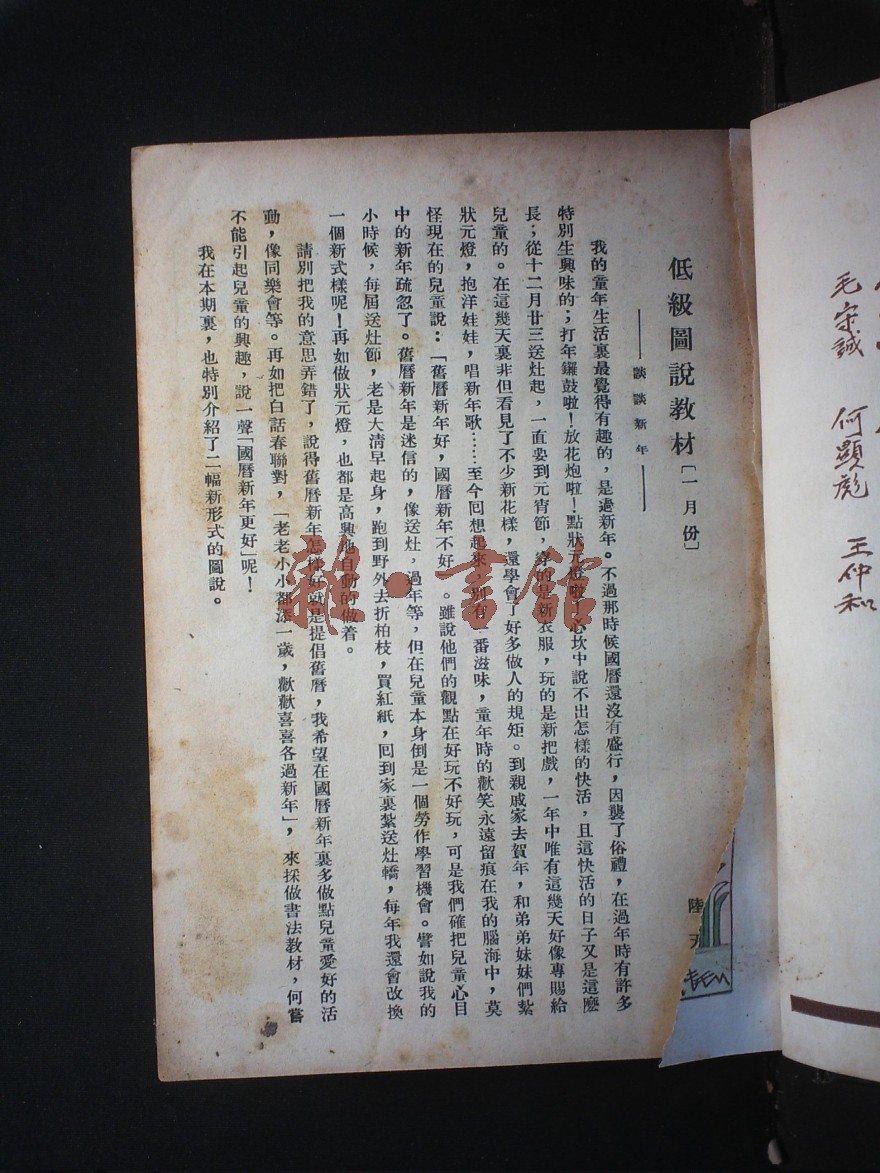 低級圖說教材〔一月份〕
——談談新年——
陸
我的童年生活裏最覺得有趣的，是過新年。不過那時候國曆還沒有盛行，因襲了俗禮，在過年時有許多
特別生興味的；打年鑼鼓啦！放花炮啦！點狀元燈啦！心坎中說不出怎樣的快活，且這快活的日子又是這麼
長；從十二月廿三送灶起，一直要到元宵節，穿的是新衣服，玩的是新把戲，一年中唯有這幾天好像專賜給
兒童的。在這幾天裏非但看見了不少新花樣，還學會了好多做人的規矩。到親戚家去賀年，和弟弟妹妹們紮
狀元燈，抱洋娃娃，唱新年歌……至今回想起來，別有一番滋味，童年時的歡笑永遠留痕在我的腦海中，莫
怪現在的兒童說：「舊曆新年好，國曆新年不好」。雖說他們的觀點在好玩不好玩，可是我們確把兒童心目
中的新年疏忽了。舊曆新年是迷信的，像送灶，過年等，但在兒童本身倒是一個勞作學習機會。譬如說我的
小時候，每屆送灶節，老是大淸早起身，跑到野外去折柏枝，買紅紙，囘到家裏紮送灶轎，每年我還會改換
一個新式樣呢！再如做狀元燈，也都是高興地自動的做着。
請別把我的意思弄錯了，說得舊曆新年怎樣好就是提倡舊曆，我希望在國曆新年裏多做點兒童愛好的活
動，像同樂會等。再如把白話春聯對，「老老小小都添一歲，歡歡喜喜各過新年」，來採做書法教材，何嘗
不能引起兒童的興趣，說一聲「國曆新年更好」呢！
我在本期裏，也特別介紹了二幅新形式的圖說。
毛守誠 何顯彪 王仲和
雜·書館